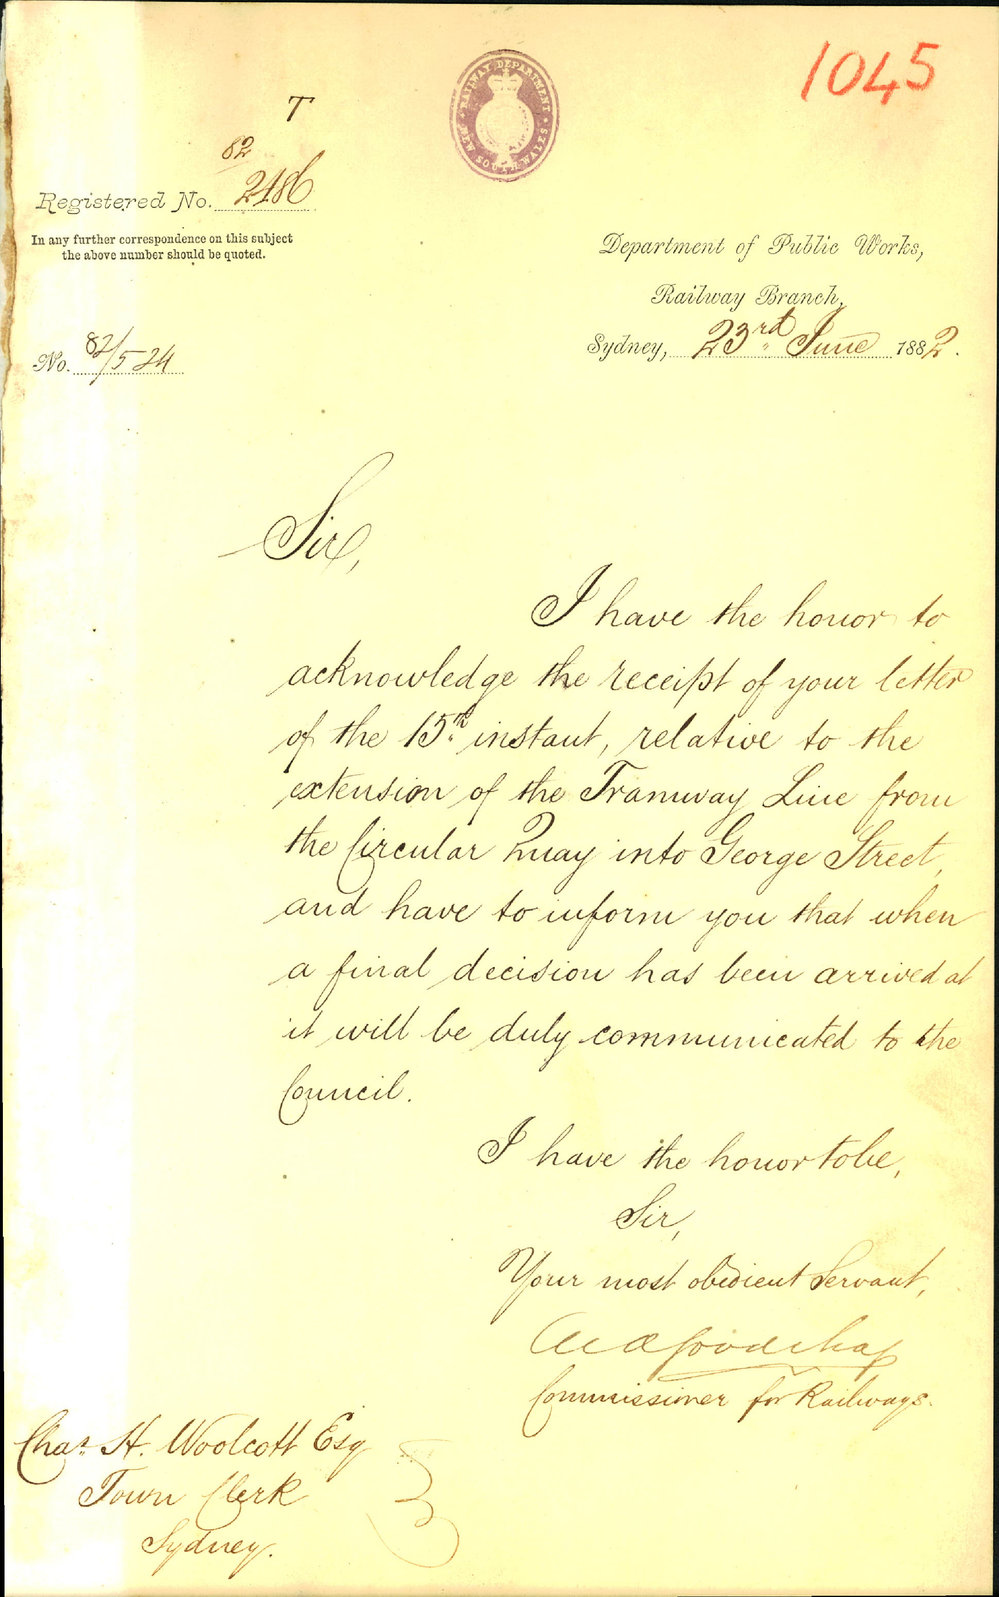 1045
RAILWAY DEPARTMENT
NEW SOUTH WALES
T
82
Registered No. 2486
In any further correspondence on this subject
the above number should be quoted.
Department of Public Works,
Railway Branch,
Sydney, 23rd June 1882.
No. 82/524
Sir,
I have the honor to
acknowledge the receipt of your letter
of the 15th instant, relative to the
extension of the Tramway Line from
the Circular Quay into George Street,
and have to inform you that when
a final decision has been arrived at
it will be duly communicated to the
Council.
I have the honor to be,
Sir,
Your most obedient Servant,
Goodchap
Commissioner for Railways.
Chas. H. Woolcott Esq
Town Clerk
Sydney.